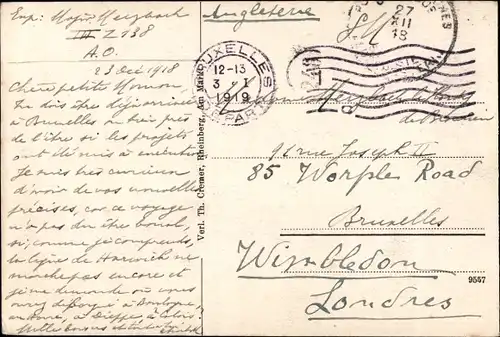 Exp: Major Merzbach
III Z 138
A.O.
23 Déc 1918
Chère petite Moman
Tu dois être déjà arrivée
à Bruxelles ou bien près
de l'être si les projets
ont été mis à exécution
Je suis très curieux
d'avoir de vos nouvelles
précises, car ce voyage
n'a pas du être banal,
si, comme je comprends,
la ligne de Harwich ne
marche pas encore et
je me demande où vous
à Boulogne,
à Dieppe, à Calais
Mille baisers
Angleterre
BRUXELLES
12-13
3 - I
1919
DÉPART
27
XII
18
Verl. Th. Cremer, Rheinberg, Am Markt
Merzbach
91 rue Joseph II
85 Worple Road
Bruxelles
Wimbledon
Londres
9557